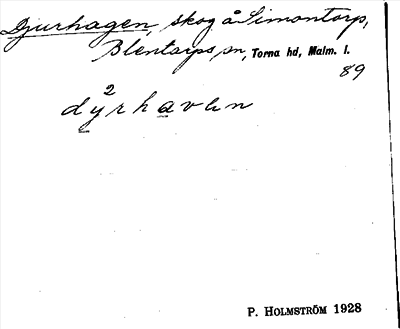 Djurhagen, skog å Simontorp,
Blentarps sn, Torna hd, Malm. l.
89
dy²rhavən
P. HOLMSTRÖM 1928